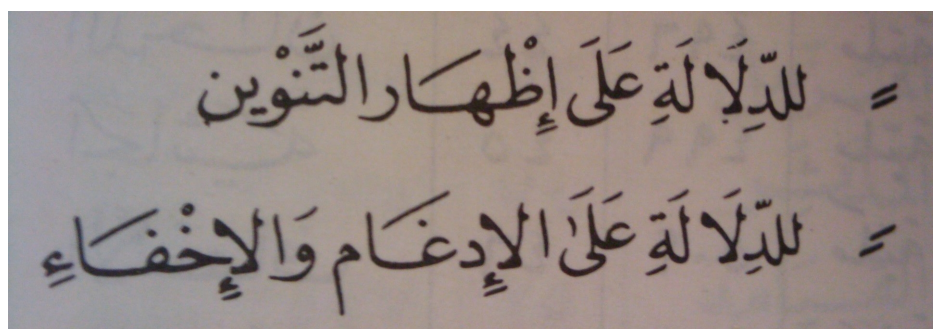 ـٍ لِلدِّلَالَةِ عَلَى إِظْهَارِ التَّنْوِينِ
ـٍ لِلدِّلَالَةِ عَلَى الإِدغَامِ وَالإِخْفَاءِ